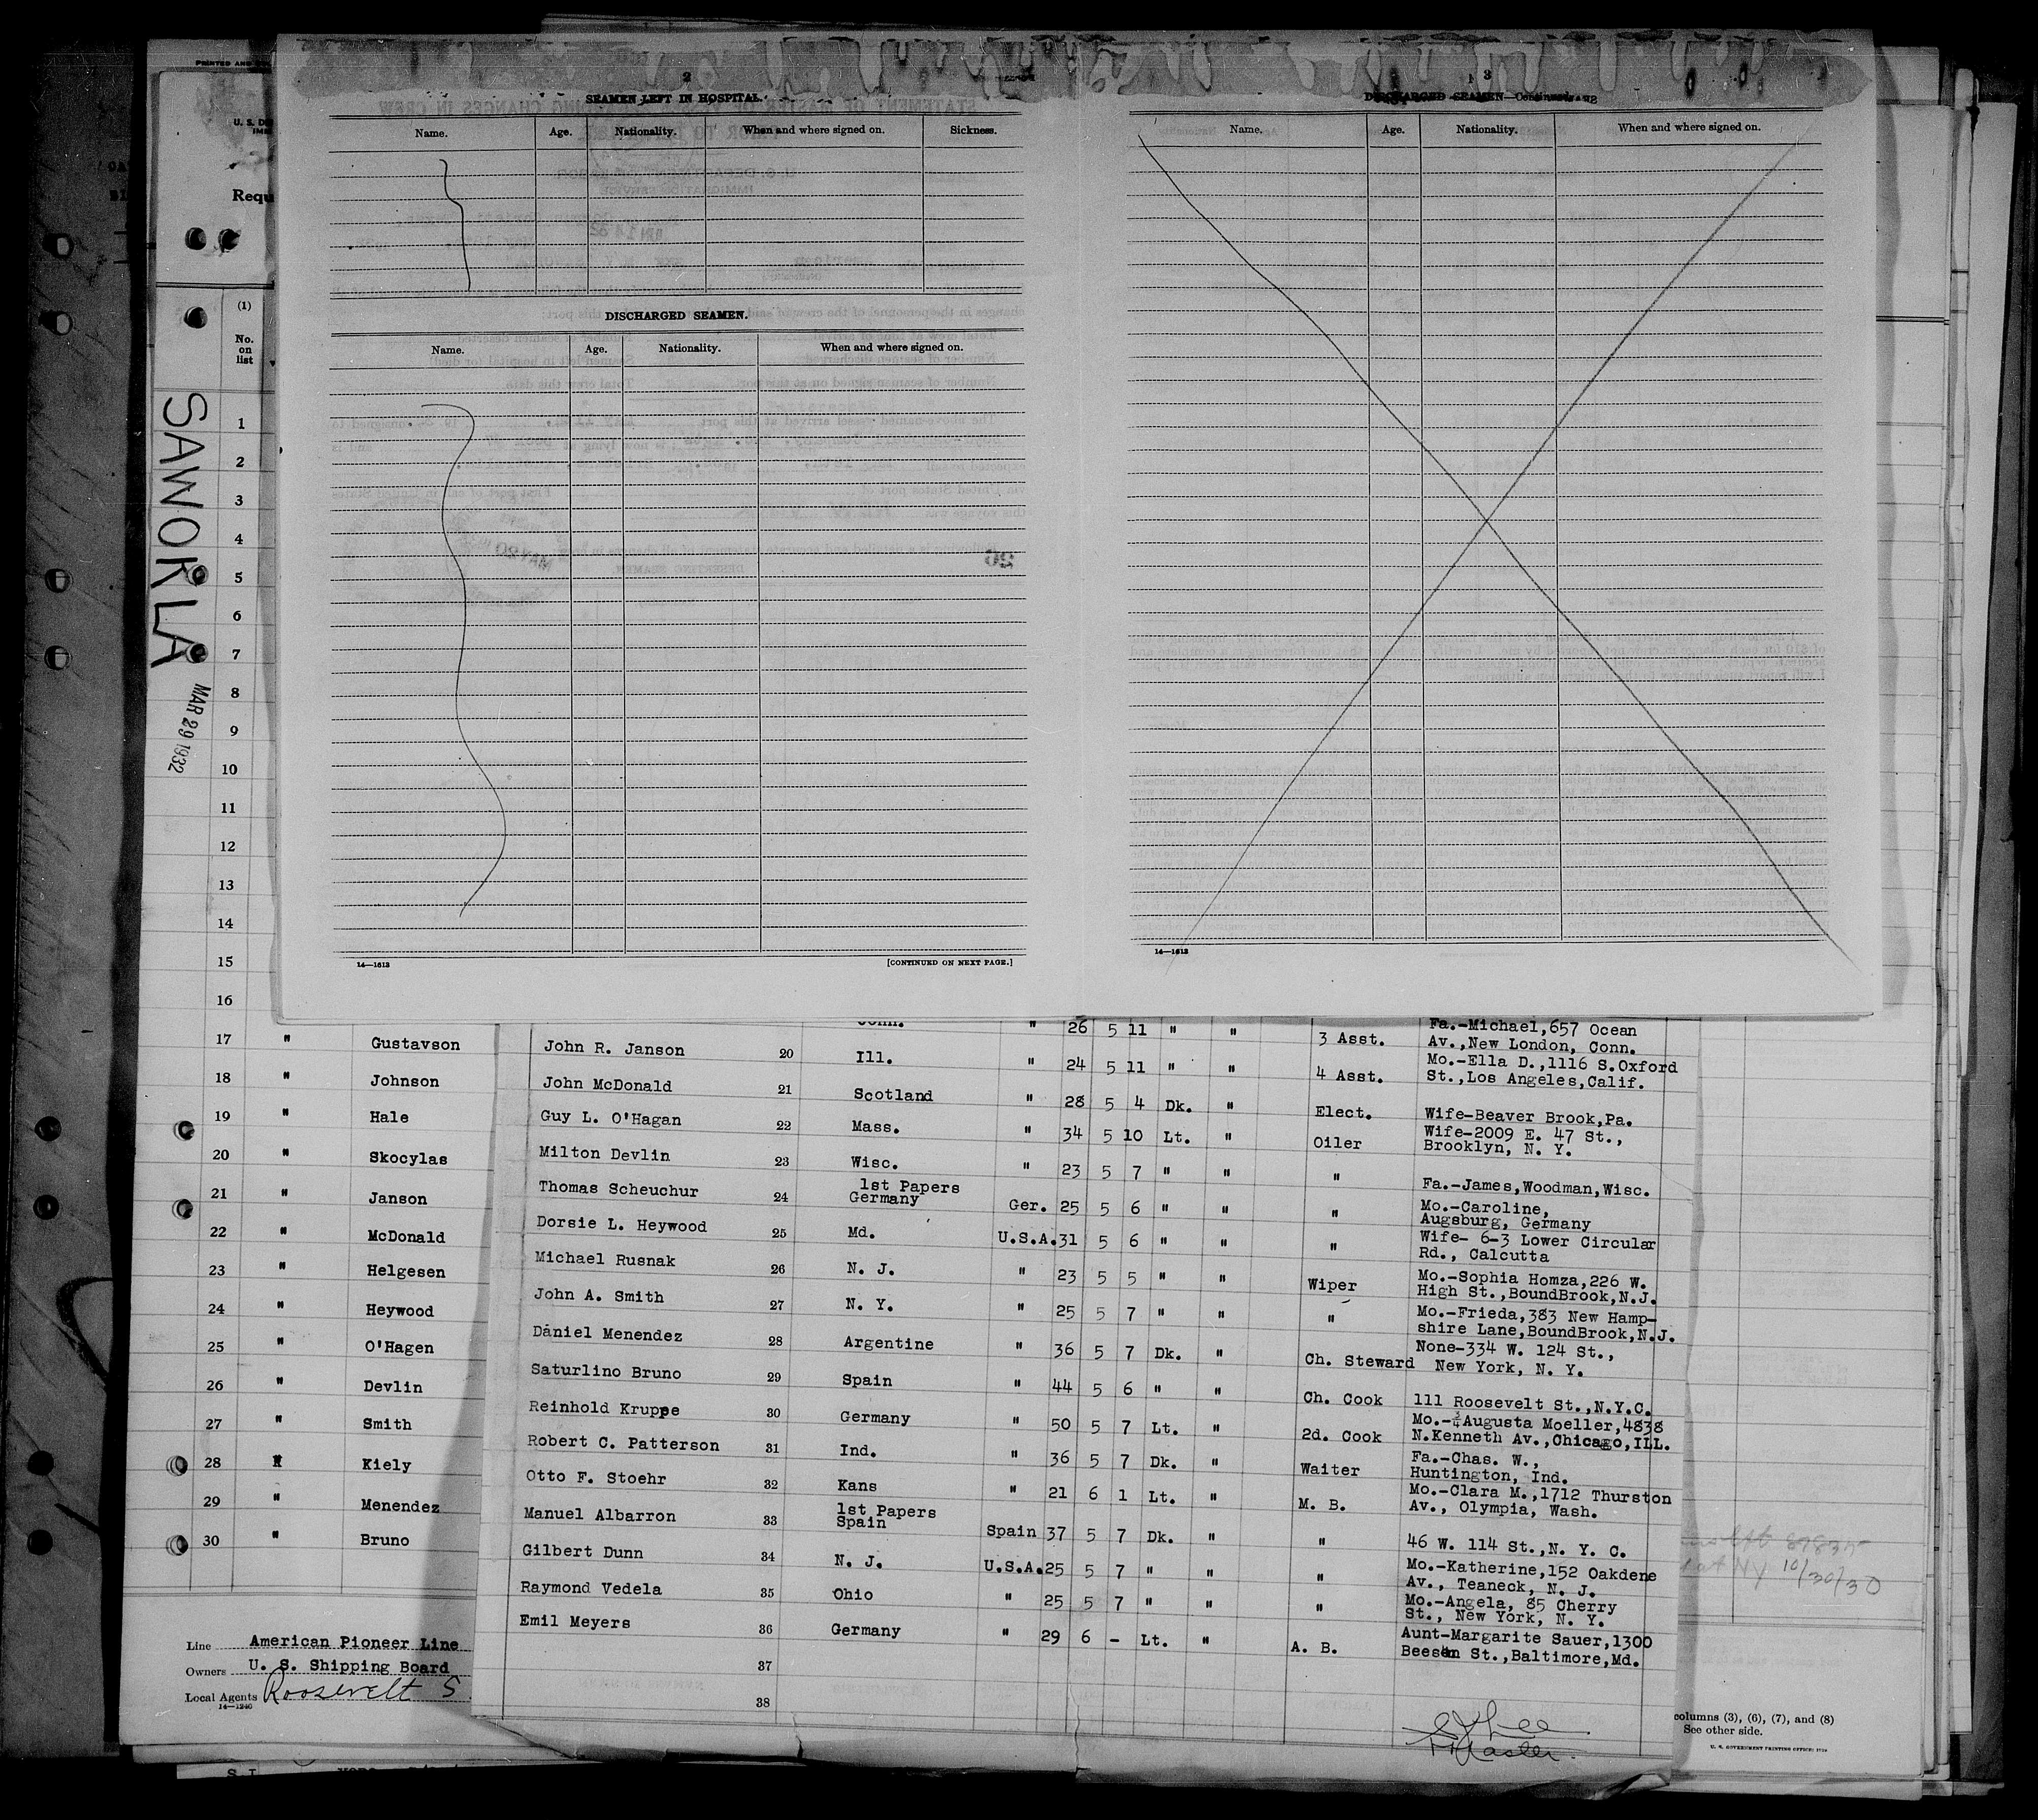 PRINTED AND
2
SEAMEN LEFT IN HOSPITAL.
Name. Age. Nationality. When and where signed on. Sickness.
DISCHARGED SEAMEN.
Name. Age. Nationality. When and where signed on.
14—1613
[CONTINUED ON NEXT PAGE.]
3
DISCHARGED SEAMEN—Continued
Name. Age. Nationality. When and where signed on.
14—1613
U. S. D
Requ
(1)
No.
on
list
SAWORLA
MAR 29 1932
1
2
3
4
5
6
7
8
9
10
11
12
13
14
15
16
17 " Gustavson
18 " Johnson
19 " Hale
20 " Skocylas
21 " Janson
22 " McDonald
23 " Helgesen
24 " Heywood
25 " O'Hagen
26 " Devlin
27 " Smith
28 " Kiely
29 " Menendez
30 " Bruno
Line American Pioneer Line
Owners U. S. Shipping Board
Local Agents Roosevelt S
14—1240
" 26 5 11 " " 3 Asst. Fa.-Michael,657 Ocean
Av.,New London, Conn.
John R. Janson 20 Ill. " 24 5 11 " " 4 Asst. Mo.-Ella D.,1116 S.Oxford
St.,Los Angeles,Calif.
John McDonald 21 Scotland " 28 5 4 Dk. " Elect. Wife-Beaver Brook,Pa.
Guy L. O'Hagan 22 Mass. " 34 5 10 Lt. " Oiler Wife-2009 E. 47 St.,
Brooklyn, N. Y.
Milton Devlin 23 Wisc. " 23 5 7 " " " Fa.-James,Woodman,Wisc.
Thomas Scheuchur 24 1st Papers
Germany Ger. 25 5 6 " " " Mo.-Caroline,
Augsburg, Germany
Dorsie L. Heywood 25 Md. U.S.A. 31 5 6 " " " Wife- 6-3 Lower Circular
Rd., Calcutta
Michael Rusnak 26 N. J. " 23 5 5 " " Wiper Mo.-Sophia Homza,226 W.
High St.,BoundBrook,N.J.
John A. Smith 27 N. Y. " 25 5 7 " " " Mo.-Frieda,383 New Hamp-
shire Lane,BoundBrook,N.J.
Daniel Menendez 28 Argentine " 36 5 7 Dk. " Ch. Steward None-334 W. 124 St.,
New York, N. Y.
Saturlino Bruno 29 Spain " 44 5 6 " " Ch. Cook 111 Roosevelt St.,N.Y.C.
Reinhold Kruppe 30 Germany " 50 5 7 Lt. " 2d. Cook Mo.-Augusta Moeller,4838
N.Kenneth Av.,Chicago,ILL.
Robert C. Patterson 31 Ind. " 36 5 7 Dk. " Waiter Fa.-Chas. W.,
Huntington, Ind.
Otto F. Stoehr 32 Kans " 21 6 1 Lt. " M. B. Mo.-Clara M.,1712 Thurston
Av., Olympia, Wash.
Manuel Albarron 33 1st Papers
Spain Spain 37 5 7 Dk. " " 46 W. 114 St.,N. Y. C.
Gilbert Dunn 34 N. J. U.S.A. 25 5 7 " " " Mo.-Katherine,152 Oakdene
Av., Teaneck, N. J.
Raymond Vedela 35 Ohio " 25 5 7 " " " Mo.-Angela, 85 Cherry
St., New York, N. Y.
Emil Meyers 36 Germany " 29 6 - Lt. " A. B. Aunt-Margarite Sauer,1300
St.,Baltimore,Md.
37
38
Master.
at NY 10/30/30
columns (3), (6), (7), and (8)
See other side.
U. S. GOVERNMENT PRINTING OFFICE: